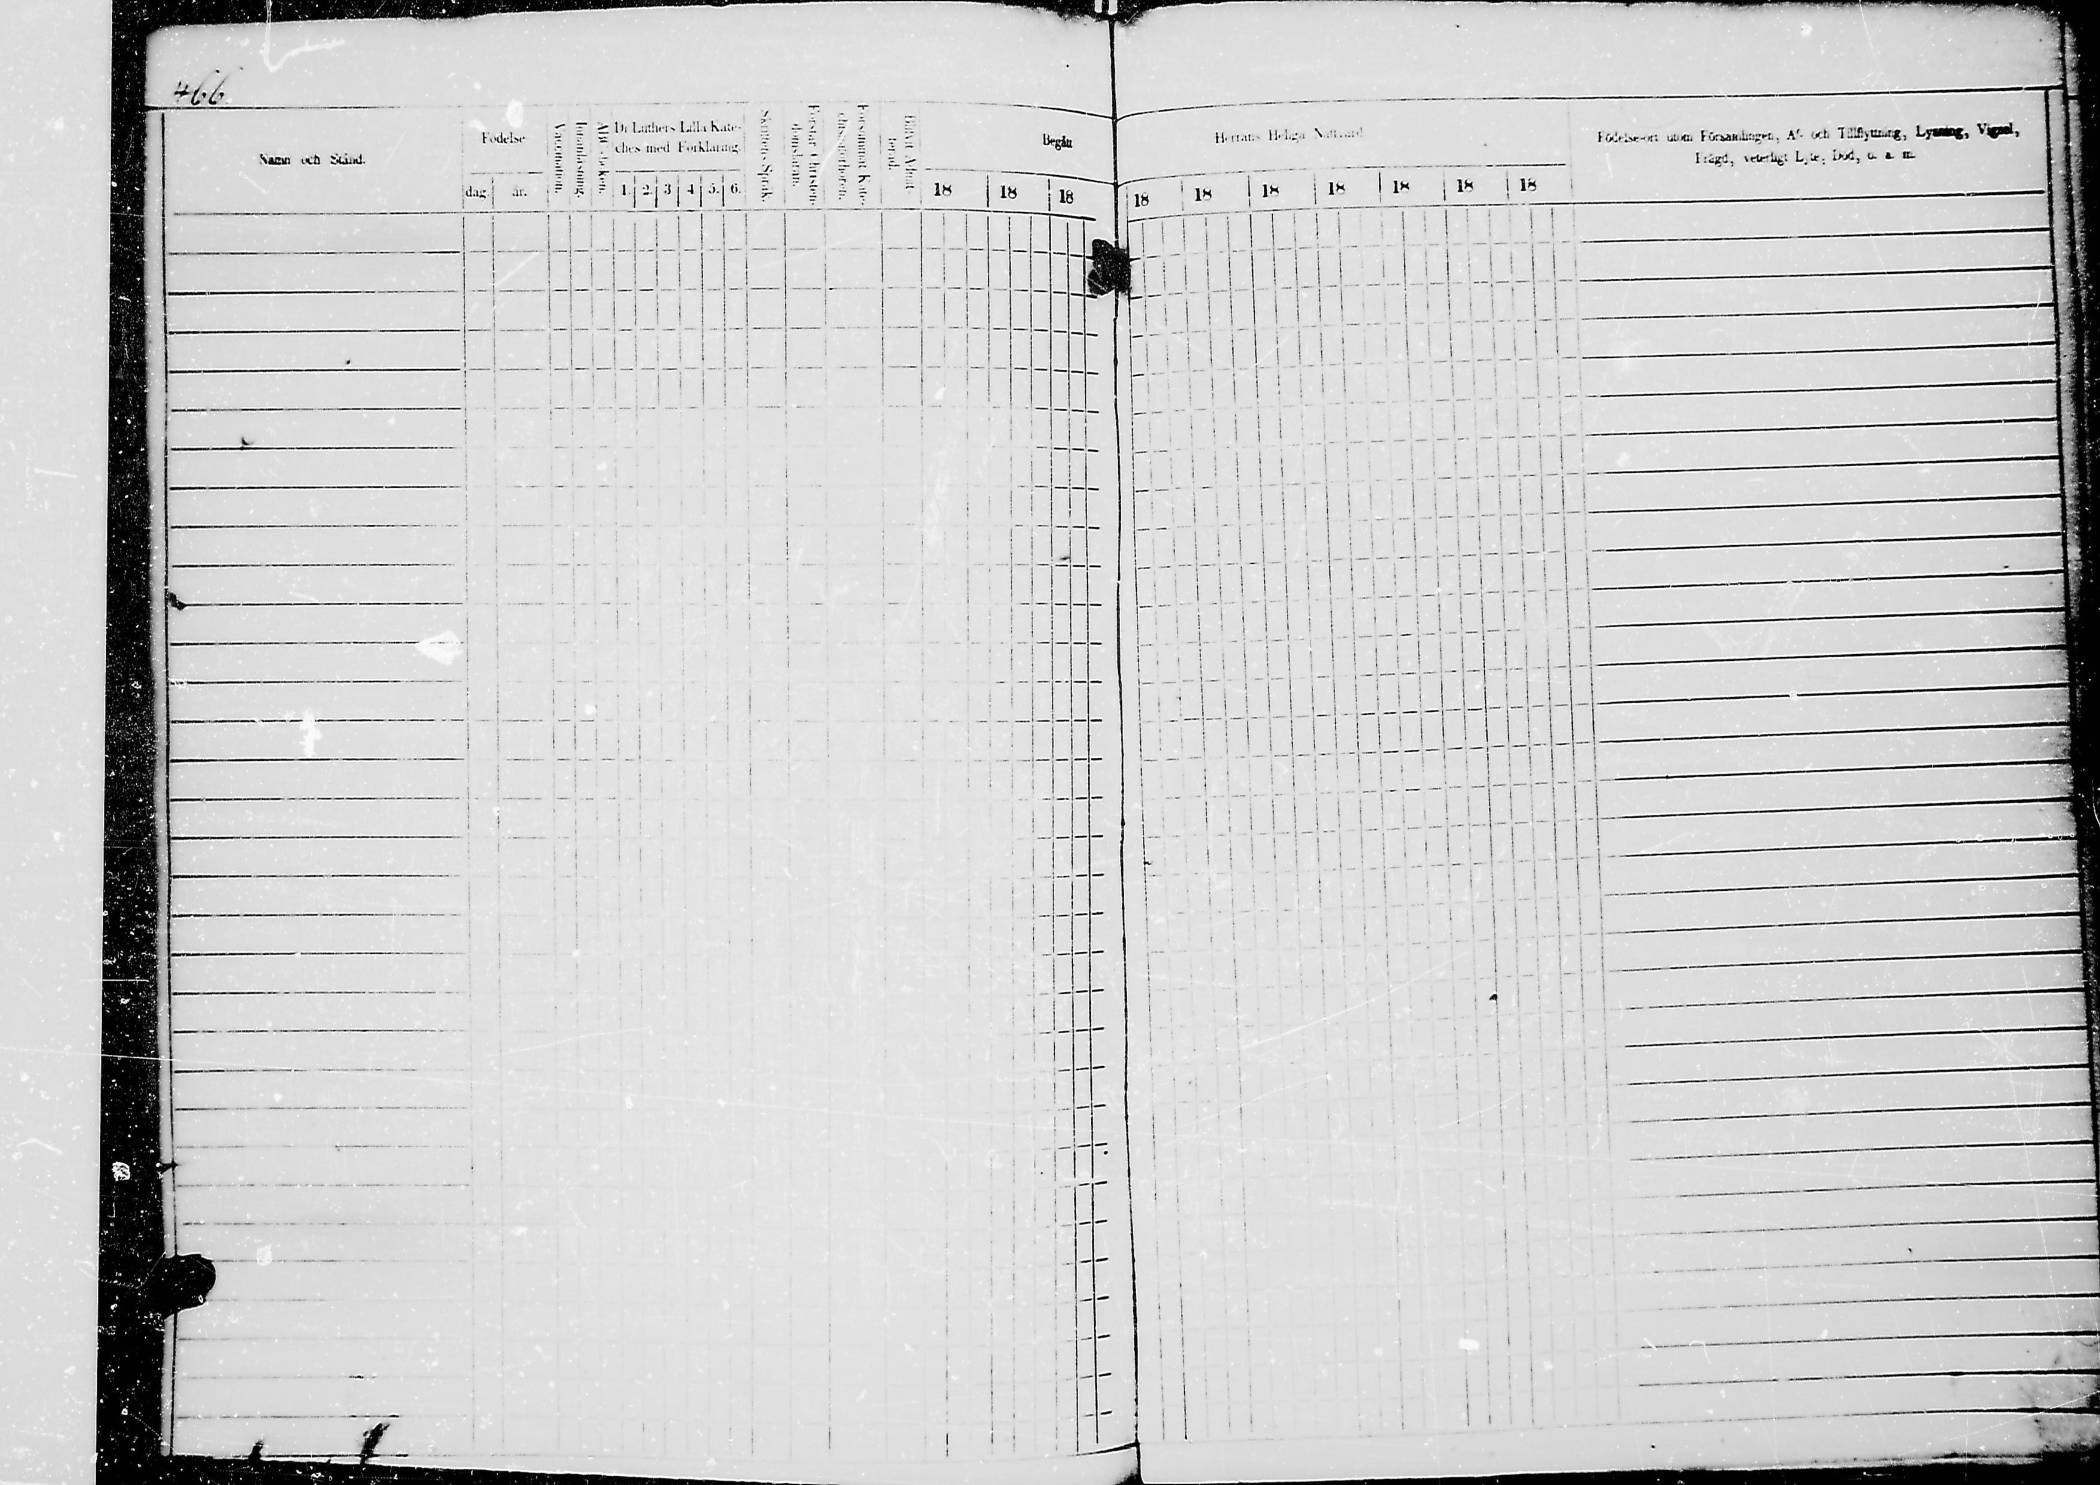 466
Namn och Stånd.
Födelse
dag. år.
Vaccination.
Innanläsning.
ABC-boken.
Dr Luthers Lilla Kate-
ches med Förklaring.
1. 2. 3 4 5. 6.
Skriftens Språk.
Förstår Christen-
domsläran.
Försummat Kate-
chismiförhören.
Blifvit Admit-
terad.
Begått
18 18 18
Herrans Heliga Nattvard
18 18 18 18 18 18 18
Födelse-ort utom Församlingen, Af- och Tillflyttning, Lysning, Vigsel,
Frägd, veterligt Lyte, Död, o. a. m.